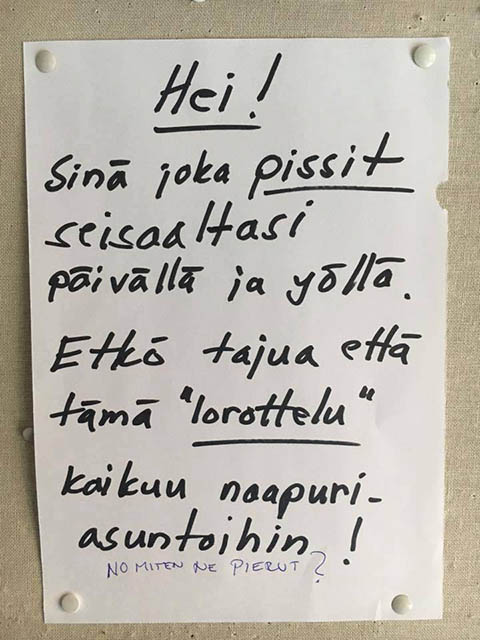 Hei!
Sinä joka pissit
seisaaltasi
päivällä ja yöllä.
Etkö tajua että
tämä "lorottelu"
kaikuu naapuri-
asuntoihin!
NO MITEN NE PIERUT?